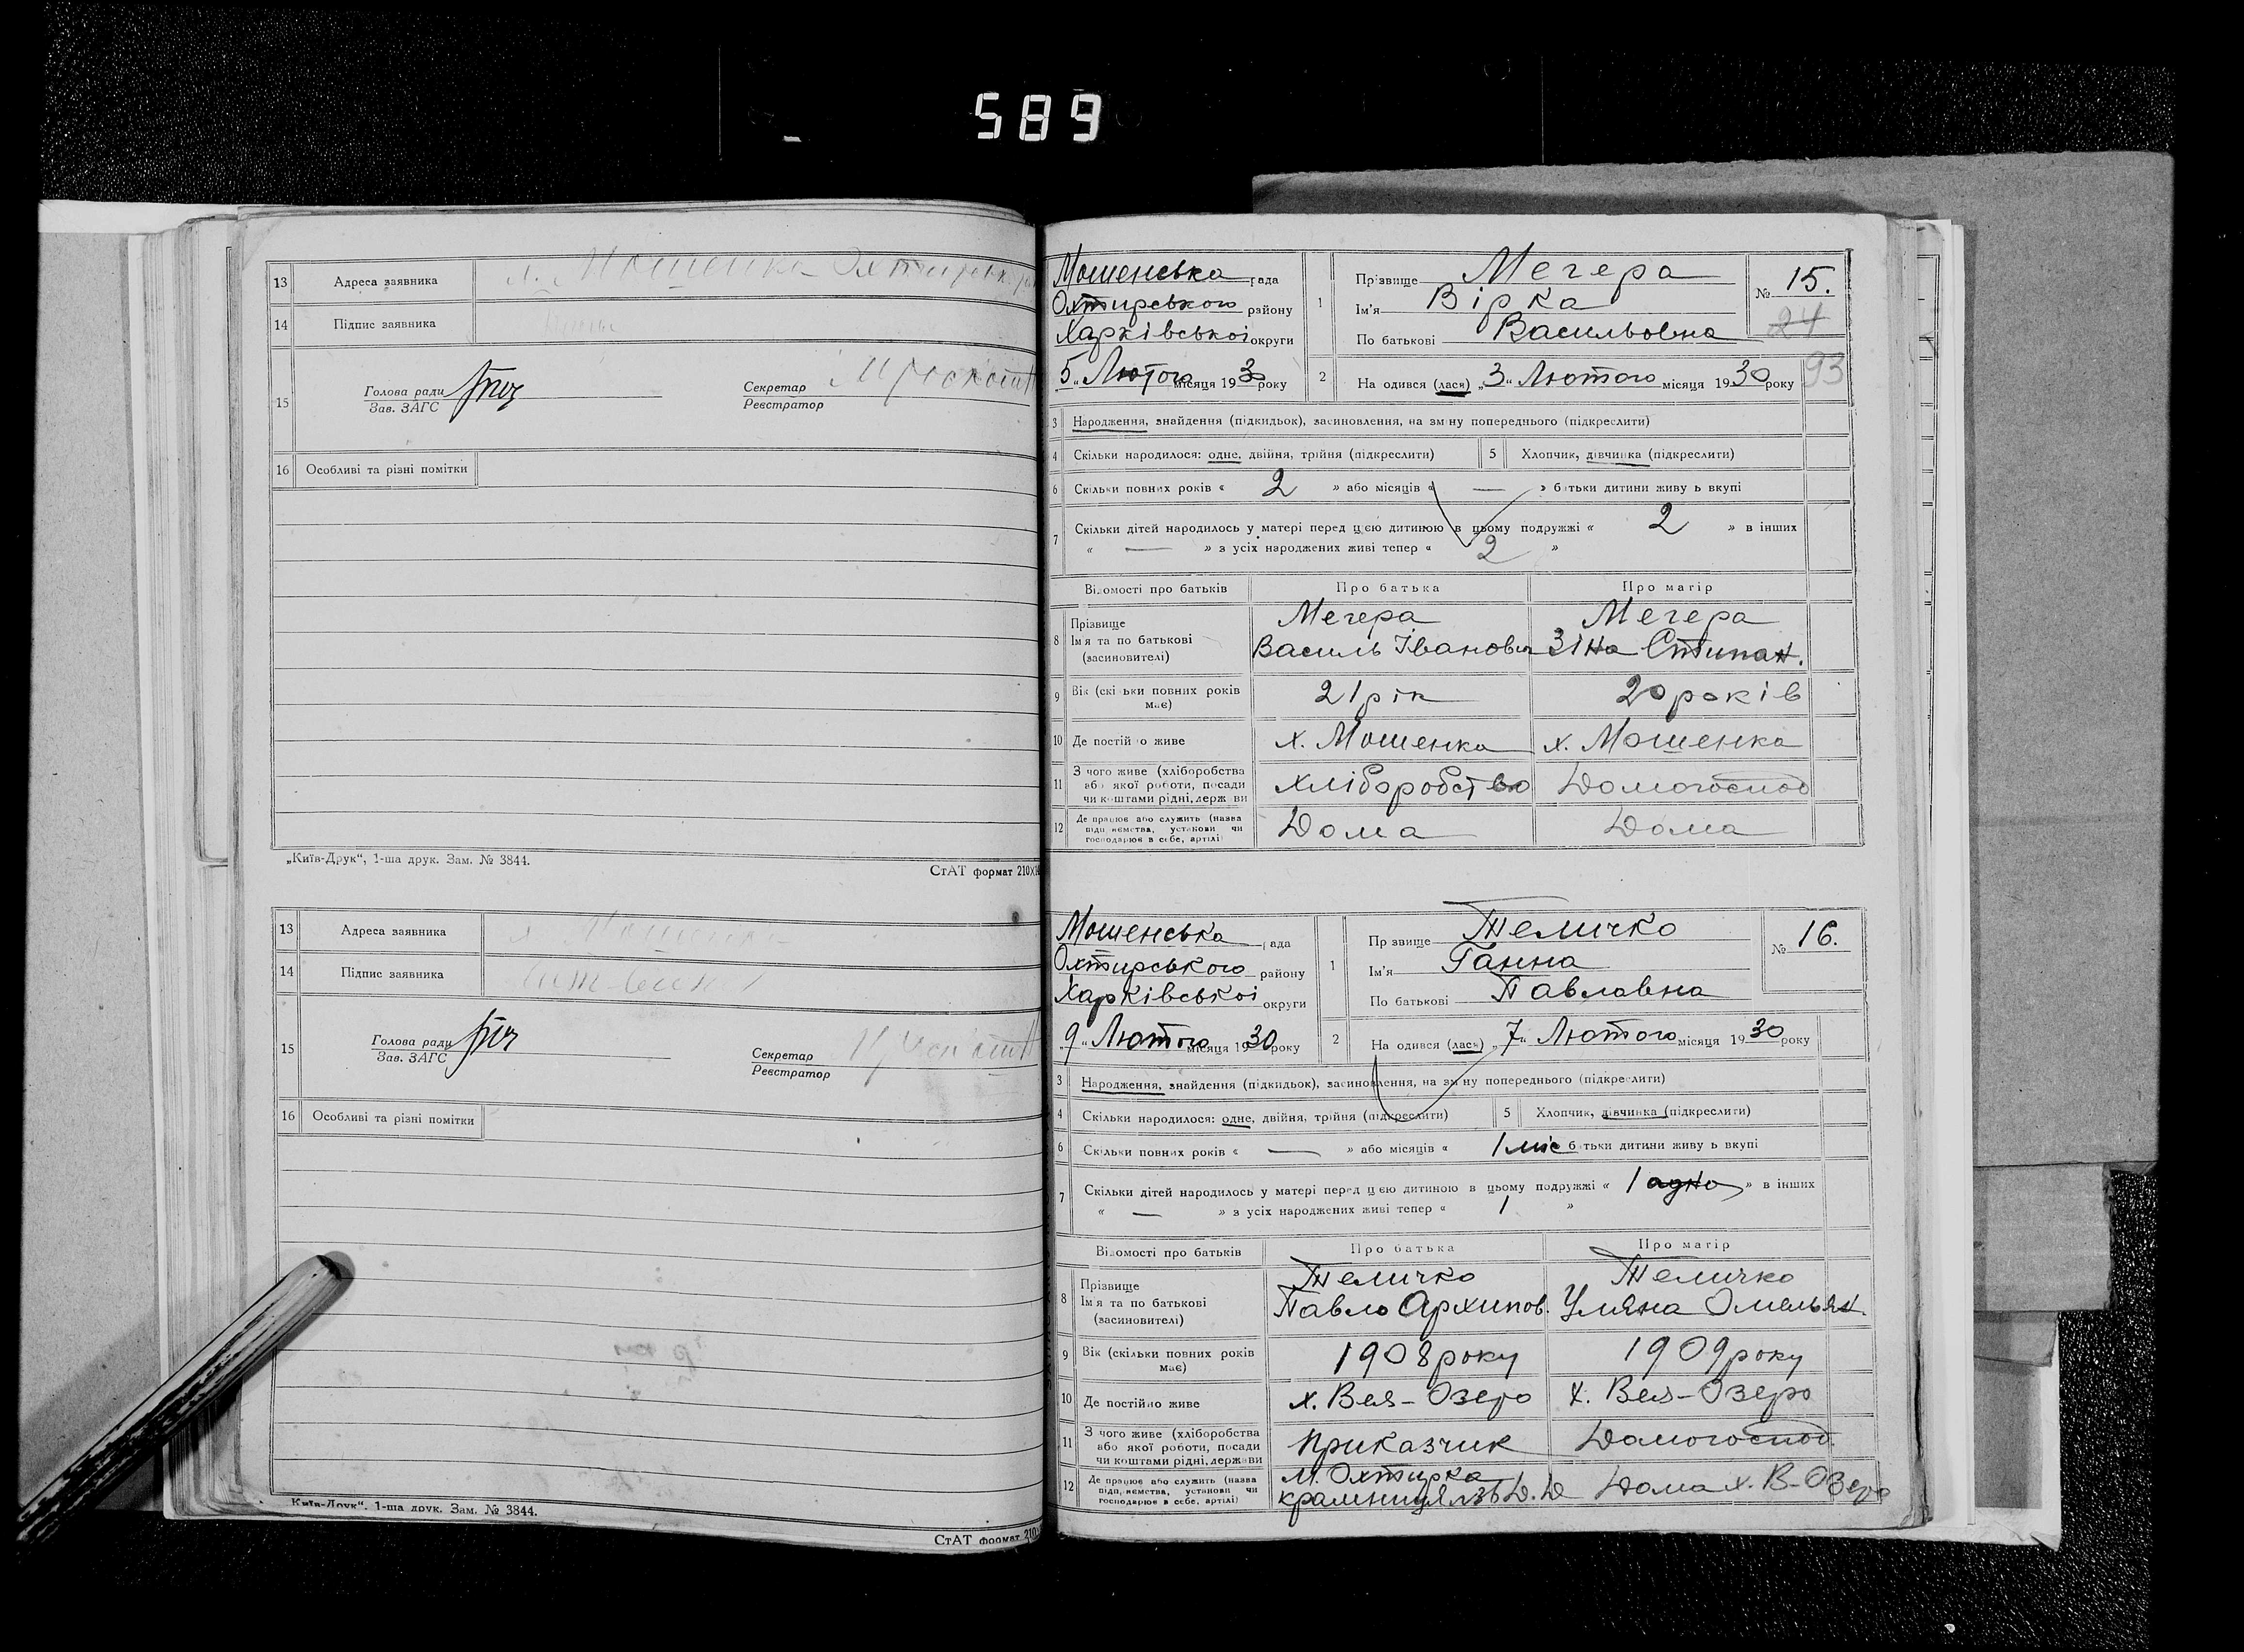 589
13 Адреса заявника х. Мошенка Охтирськ.
14 Підпис заявника
15 Голова ради Секретар
Зав. ЗАГС Реєстратор
16 Особливі та різні помітки
„Київ-Друк“, 1-ша друк. Зам. № 3844.
СтАТ формат 210х
13 Адреса заявника х. Мошенка
14 Підпис заявника
15 Голова ради Секретар
Зав. ЗАГС Реєстратор
16 Особливі та різні помітки
Київ-Друк“, 1-ша друк. Зам. № 3844.
СтАТ формат 210
Мошенська рада
Охтирського району
Харківської округи
5 „ Лютого місяця 1930 року
1 Прізвище Мегера
Ім'я Вірка
По батькові Васильовна
№ 15.
24
93
2 На одився (лася) „3“ Лютого місяця 1930 року
3 Народження, знайдення (підкидьок), засиновлення, на зміну попереднього (підкреслити)
4 Скільки народилося: одне, двійня, трійня (підкреслити) 5 Хлопчик, дівчинка (підкреслити)
6 Скільки повних років « 2 » або місяців « — » батьки дитини живу ь вкупі
7 Скільки дітей народилось у матері перед цією дитиною в цьому подружжі « 2 » в інших
« — » з усіх народжених живі тепер « 2 »
Відомості про батьків Про батька Про матір
8 Прізвище Мегера Мегера
Ім'я та по батькові Василь Іванович Зіна Степан.
(засиновителі)
9 Вік (скільки повних років має) 21 рік 20 років
10 Де постійно живе х. Мошенка х. Мошенка
11 З чого живе (хліборобства або якої роботи, посади чи коштами рідні, держави Хліборобство Домогоспод
12 Де працює або служить (назва підприємства, установи чи господарює в себе, артілі) Дома Дома
Мошенська рада
Охтирського району
Харківської округи
„9“ Лютого місяця 1930 року
1 Прізвище Теличко
Ім'я Ганна
По батькові Павлавна
№ 16.
2 На одився (лася) „7“ Лютого місяця 1930 року
3 Народження, знайдення (підкидьок), засиновлення, на зміну попереднього (підкреслити)
4 Скільки народилося: одне, двійня, трійня (підкреслити) 5 Хлопчик, дівчинка (підкреслити)
6 Скільки повних років « — » або місяців « 1 міс батьки дитини живу ь вкупі
7 Скільки дітей народилось у матері перед цією дитиною в цьому подружжі « 1 адно » в інших
« — » з усіх народжених живі тепер « 1 »
Відомості про батьків Про батька Про матір
8 Прізвище Теличко Теличко
Ім'я та по батькові Павло Архипов. Уляна Омельян.
(засиновителі)
9 Вік (скільки повних років має) 1908 року 1909 року
10 Де постійно живе х. Веля-Озеро х. Веля-Озеро
11 З чого живе (хліборобства або якої роботи, посади чи коштами рідні, держави приказчик Домогоспод.
12 Де працює або служить (назва підприємства, установи чи господарює в себе, артілі) м. Охтирка Дома х. В-Озеро